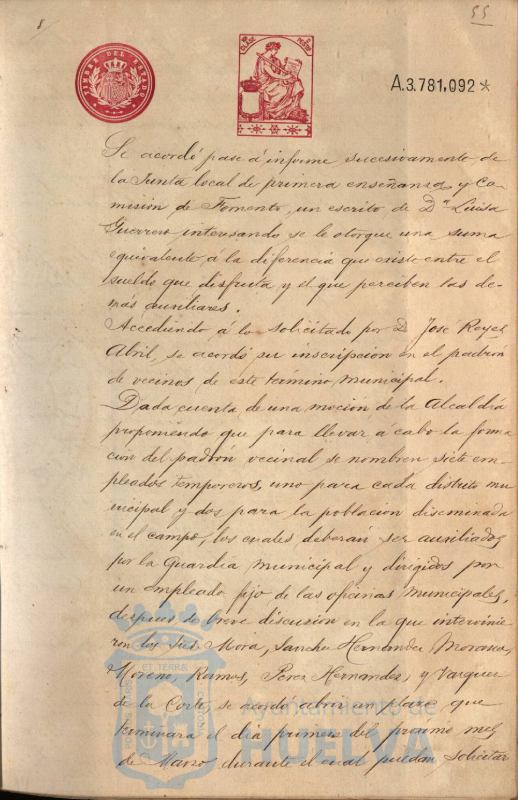 8
55
TIMBRE DEL ESTADO
A.3.781,092*
Se acordó pase á informe sucesivamente de
la Junta local de primera enseñanza y Co-
misión de Fomento, un escrito de D.ª Luisa
Guerrero interesando se le otorgue una suma
equivalente á la diferencia que existe entre el
sueldo que disfruta y el que perciben las de-
más auxiliares.
Accediendo á lo solicitado por D. José Reyes
Abril, se acordó su inscripcion en el padrón
de vecinos de este término municipal.
Dada cuenta de una moción de la Alcaldía
proponiendo que para llevar á cabo la forma
ción del padrón vecinal se nombren siete em-
pleados temporeros, uno para cada distrito mu
nicipal y dos para la población diseminada
en el campo, los cuales deberán ser auxiliados
por la Guardia municipal y dirigidos por
un empleado fijo de las oficinas municipales,
despues de breve discusión en la que intervinie
ron los Sres. Mora, Sanchez Hernandez,
Moreno, Ramos, Perez Hernandez, y Vazquez
de la Corte, se acordó abrir un plazo que
terminará el dia primero del próximo mes
de Marzo durante el cual puedan solicitar
Ayuntamiento de
HUELVA